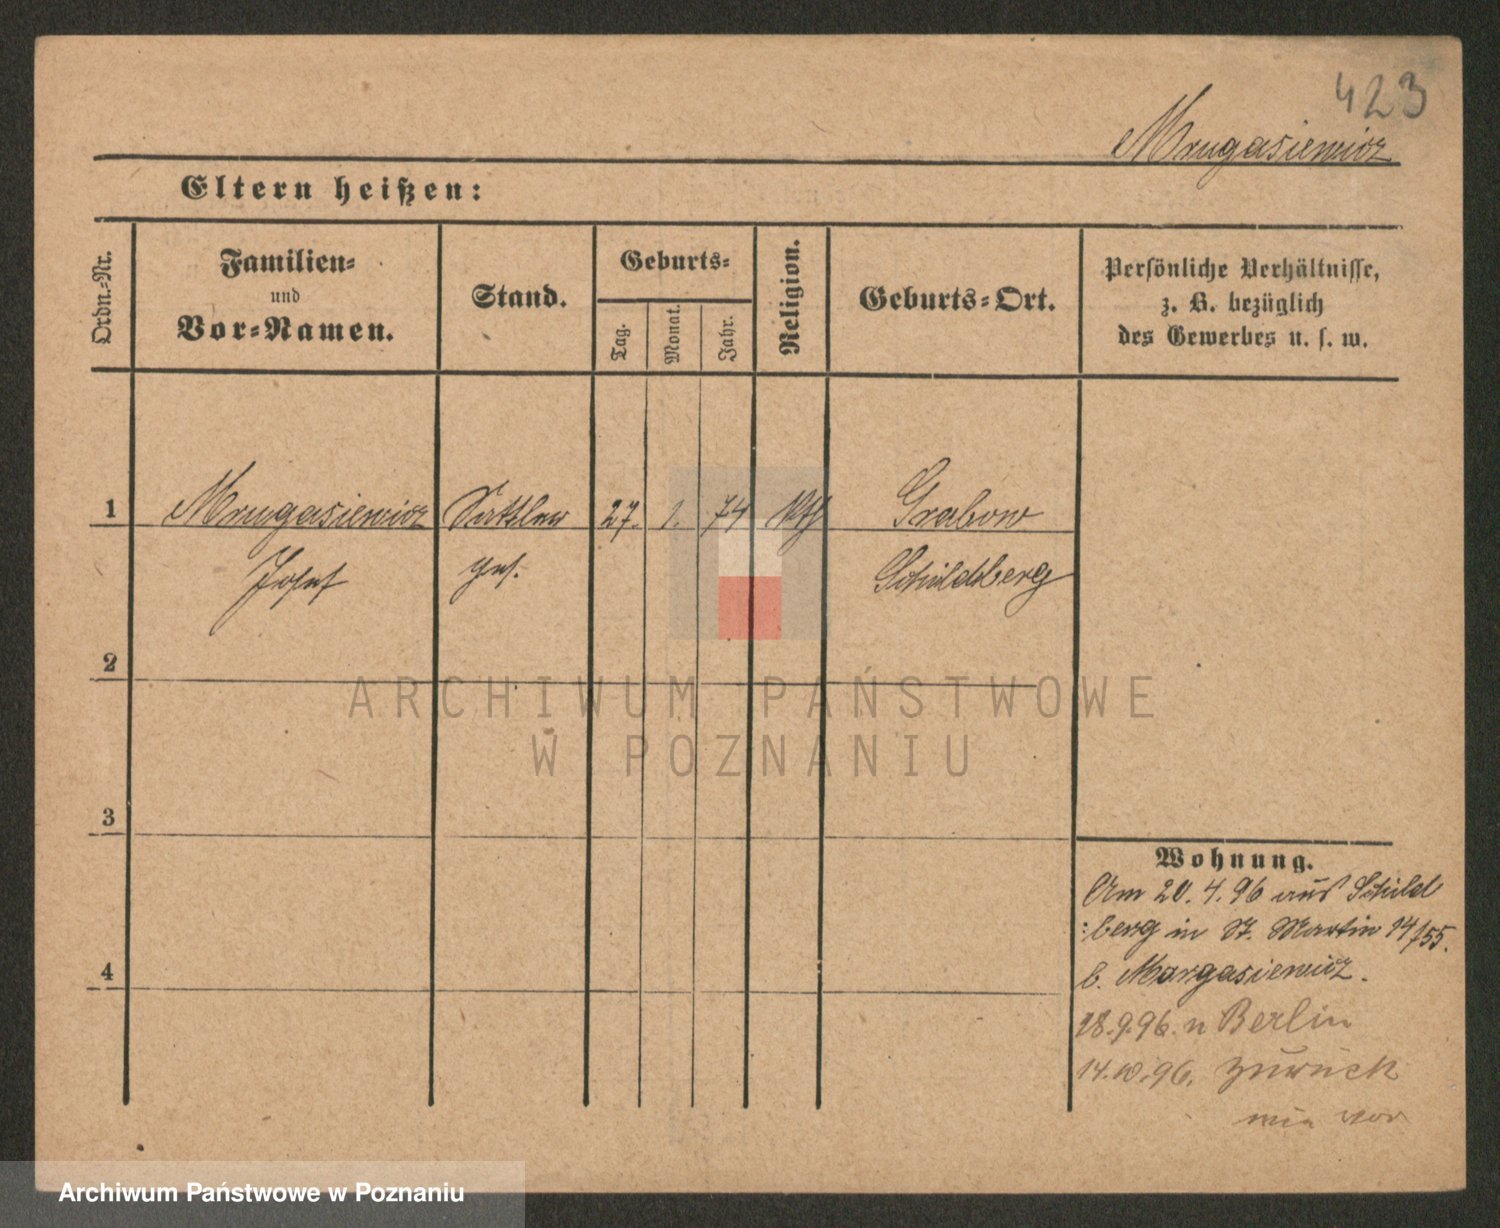 423
Mrugasiewicz
Eltern heißen:
Ordn.-Nr.
Familien-
und
Vor-Namen.
Stand.
Geburts-
Tag.
Monat.
Jahr.
Religion.
Geburts-Ort.
Persönliche Verhältnisse,
z. B. bezüglich
des Gewerbes u. s. w.
1 Mrugasiewicz Sattler 27. 1. 74 kth Grabow
Josef ges. Schildberg
2
3
4
Wohnung.
Am 20.4.96 aus Schild
:berg in St. Martin 14/55.
b. Margasiewicz.
28.9.96. n Berlin
14.10.96. zurück
wie vor
ARCHIWUM PAŃSTWOWE
W POZNANIU
Archiwum Państwowe w Poznaniu